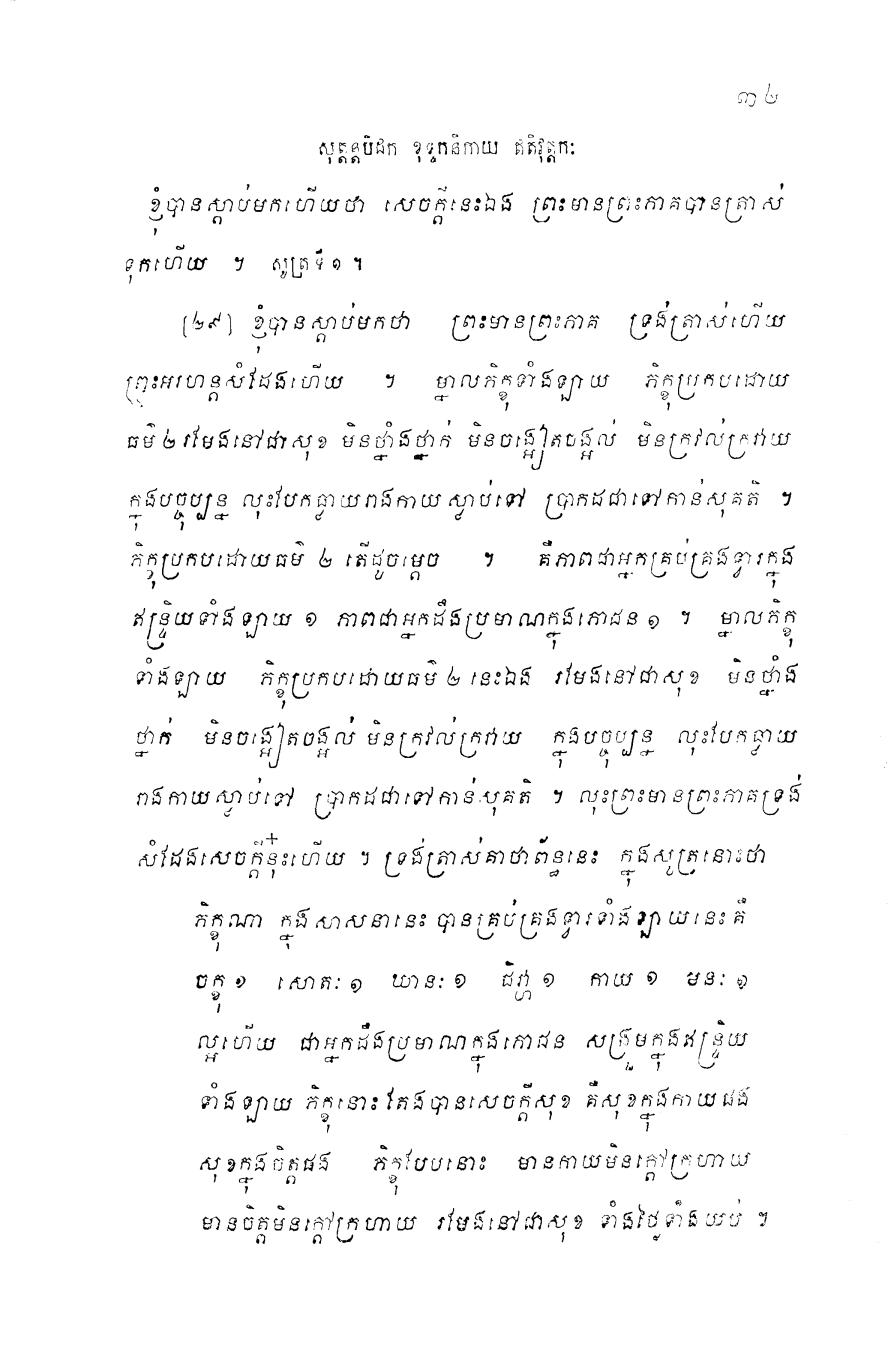 ៣៤
សុត្តន្តបិដក ខុទ្ទកនិកាយ ឥតិវុត្តកៈ
ខ្ញុំបានស្តាប់មកហើយថា សេចក្តីនេះឯង ព្រះមានព្រះភាគបានត្រាស់
ទុកហើយ ។ សូត្រទី១ ។
[២៩] ខ្ញុំបានស្តាប់មកថា ព្រះមានព្រះភាគ ទ្រង់ត្រាស់ហើយ
ព្រះអរហន្តសំដែងហើយ ។ ម្នាលភិក្ខុទាំងឡាយ ភិក្ខុប្រកបដោយ
ធម៌ ២ រមែងនៅជាសុខ មិនថ្នាំងថ្នាក់ មិនចង្អៀតចង្អល់ មិនក្រវល់ក្រវាយ
ក្នុងបច្ចុប្បន្ន លុះបែកធ្លាយរាងកាយស្លាប់ទៅ ប្រាកដជាទៅកាន់សុគតិ ។
ភិក្ខុប្រកបដោយធម៌ ២ តើដូចម្តេច ។ គឺភាពជាអ្នកគ្រប់គ្រងទ្វារក្នុង
ឥន្ទ្រិយទាំងឡាយ ១ ភាពជាអ្នកដឹងប្រមាណក្នុងភោជន ១ ។ ម្នាលភិក្ខុ
ទាំងឡាយ ភិក្ខុប្រកបដោយធម៌ ២ នេះឯង រមែងនៅជាសុខ មិនថ្នាំង
ថ្នាក់ មិនចង្អៀតចង្អល់ មិនក្រវល់ក្រវាយ ក្នុងបច្ចុប្បន្ន លុះបែកធ្លាយ
រាងកាយស្លាប់ទៅ ប្រាកដជាទៅកាន់សុគតិ ។ លុះព្រះមានព្រះភាគទ្រង់
សំដែងសេចក្តីនុ៎ះហើយ ។ ទ្រង់ត្រាស់គាថាព័ន្ធនេះ ក្នុងសូត្រនោះថា
ភិក្ខុណា ក្នុងសាសនានេះ បានគ្រប់គ្រងទ្វារទាំងឡាយនេះគឺ
ចក្ខុ ១ សោតៈ ១ ឃានៈ ១ ជិវ្ហា ១ កាយ ១ មនៈ ១
ល្អហើយ ជាអ្នកដឹងប្រមាណក្នុងភោជន សង្រួមក្នុងឥន្ទ្រិយ
ទាំងឡាយ ភិក្ខុនោះតែងបានសេចក្តីសុខ គឺសុខក្នុងកាយផង
សុខក្នុងចិត្តផង ភិក្ខុបែបនោះ មានកាយមិនក្តៅក្រហាយ
មានចិត្តមិនក្តៅក្រហាយ រមែងនៅជាសុខ ទាំងថ្ងៃទាំងយប់ ។